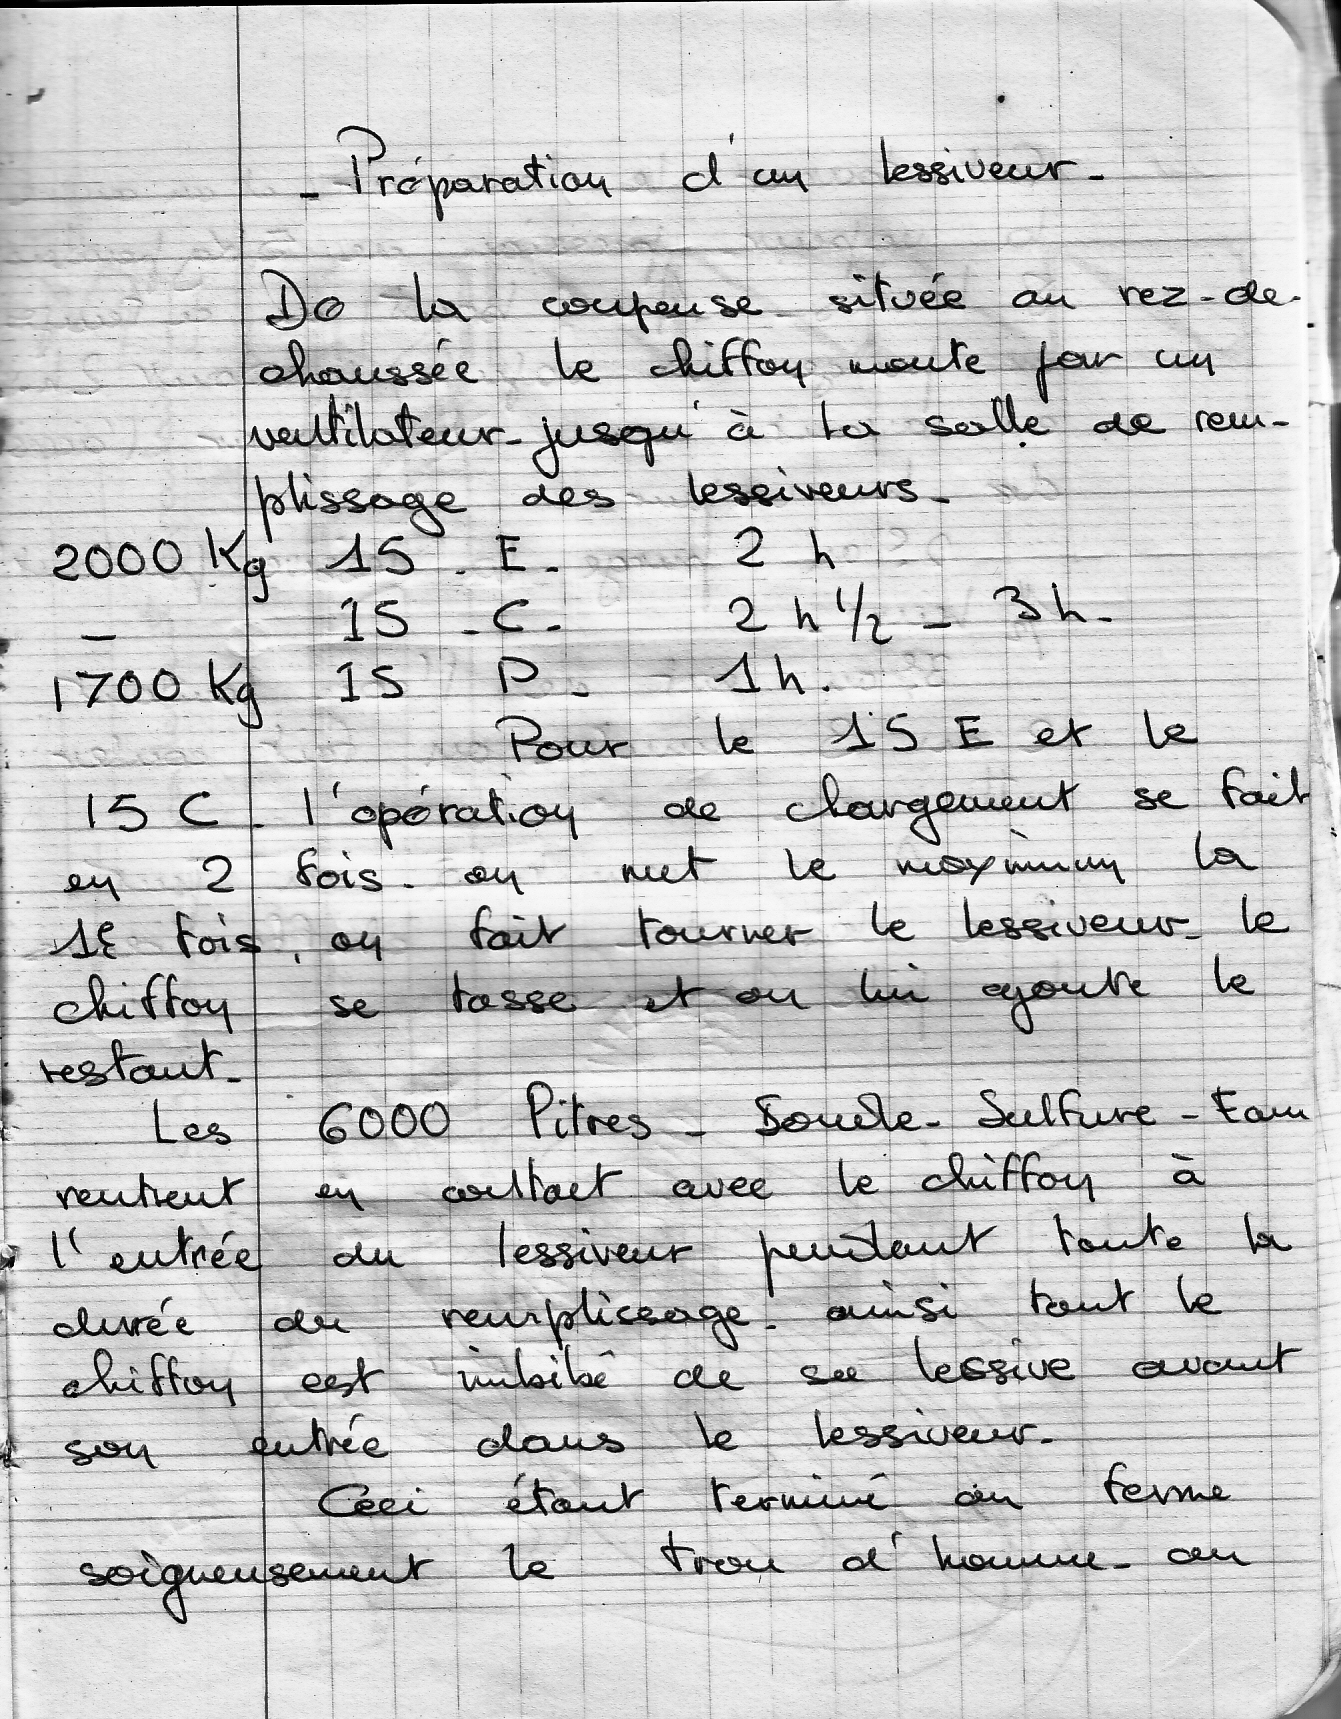 - Préparation d'un lessiveur -
De la coupeuse située au rez-de-
chaussée le chiffon monte par un
ventilateur jusqu'à la salle de rem-
plissage des lessiveurs -
2000 Kg 15 - E - 2 h
_ 15 - C - 2 h 1/2 - 3 h -
1700 Kg 15 P - 1 h.
Pour le 15 E et le
15 C - l'opération de chargement se fait
en 2 fois - on met le maximum la
1è fois, on fait tourner le lessiveur - le
chiffon se tasse et on lui ajoute le
restant -
Les 6000 litres - Soude - Sulfure - Eau
rentrent en contact avec le chiffon à
l'entrée du lessiveur pendant toute la
durée du remplissage - ainsi tout le
chiffon est imbibé de sa lessive avant
son entrée dans le lessiveur -
Ceci étant terminé on ferme
soigneusement le trou d'homme - on